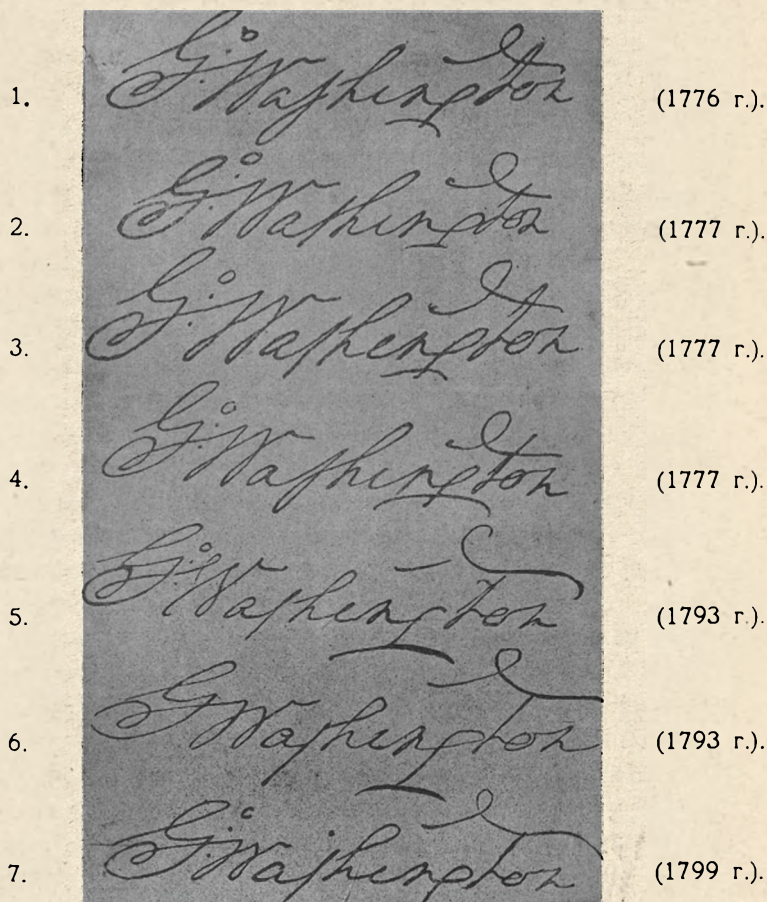 1. Gº: Washington (1776 г.).
2. Gº: Washington (1777 г.).
3. Gº: Washington (1777 г.).
4. Gº: Washington (1777 г.).
5. Gº: Washington (1793 г.).
6. GWashington (1793 г.).
7. Gº: Washington (1799 г.).